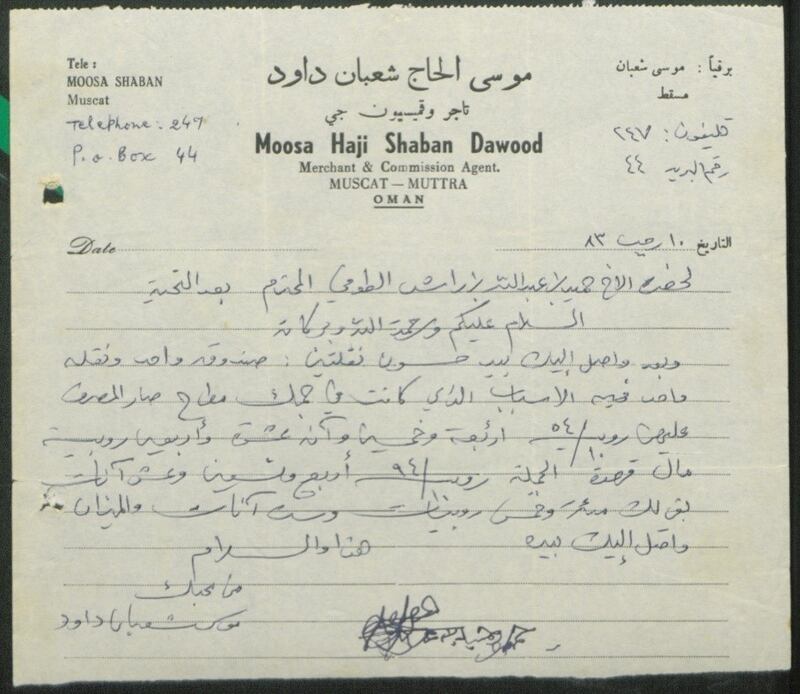 Tele :
MOOSA SHABAN
Muscat
Telephone: 247
P.o. Box 44
موسى الحاج شعبان داود
تاجر وقميسيون جي
Moosa Haji Shaban Dawood
Merchant & Commission Agent.
MUSCAT — MUTTRA
OMAN
برقياً : موسى شعبان
مسقط
تليفون: ٢٤٧
رقم البريد ٤٤
Date
التاريخ ١٠ رجب ٨٣
لحضرة الأخ حميد بن عبدالله بن راشد المحترم بعد التحية
السلام عليكم ورحمة الله وبركاته
وبعد واصل إليك بيد نقلتين : صندوق واحد ونقله
واحد فيه الأسباب الذي كانت في مطرح صار المصرف
عليهن روبية ٥٤/١٠ أربعة وخمسين وآنه عشرة وأربعين روبية
مال الجملة روبية ٩٤/ أربع وتسعين وعشر آنات
بقي لك وخمس روبيات وسته آنات والميزان
واصل إليك بيده هذا والسلام
من محبك
موسى شعبان داود